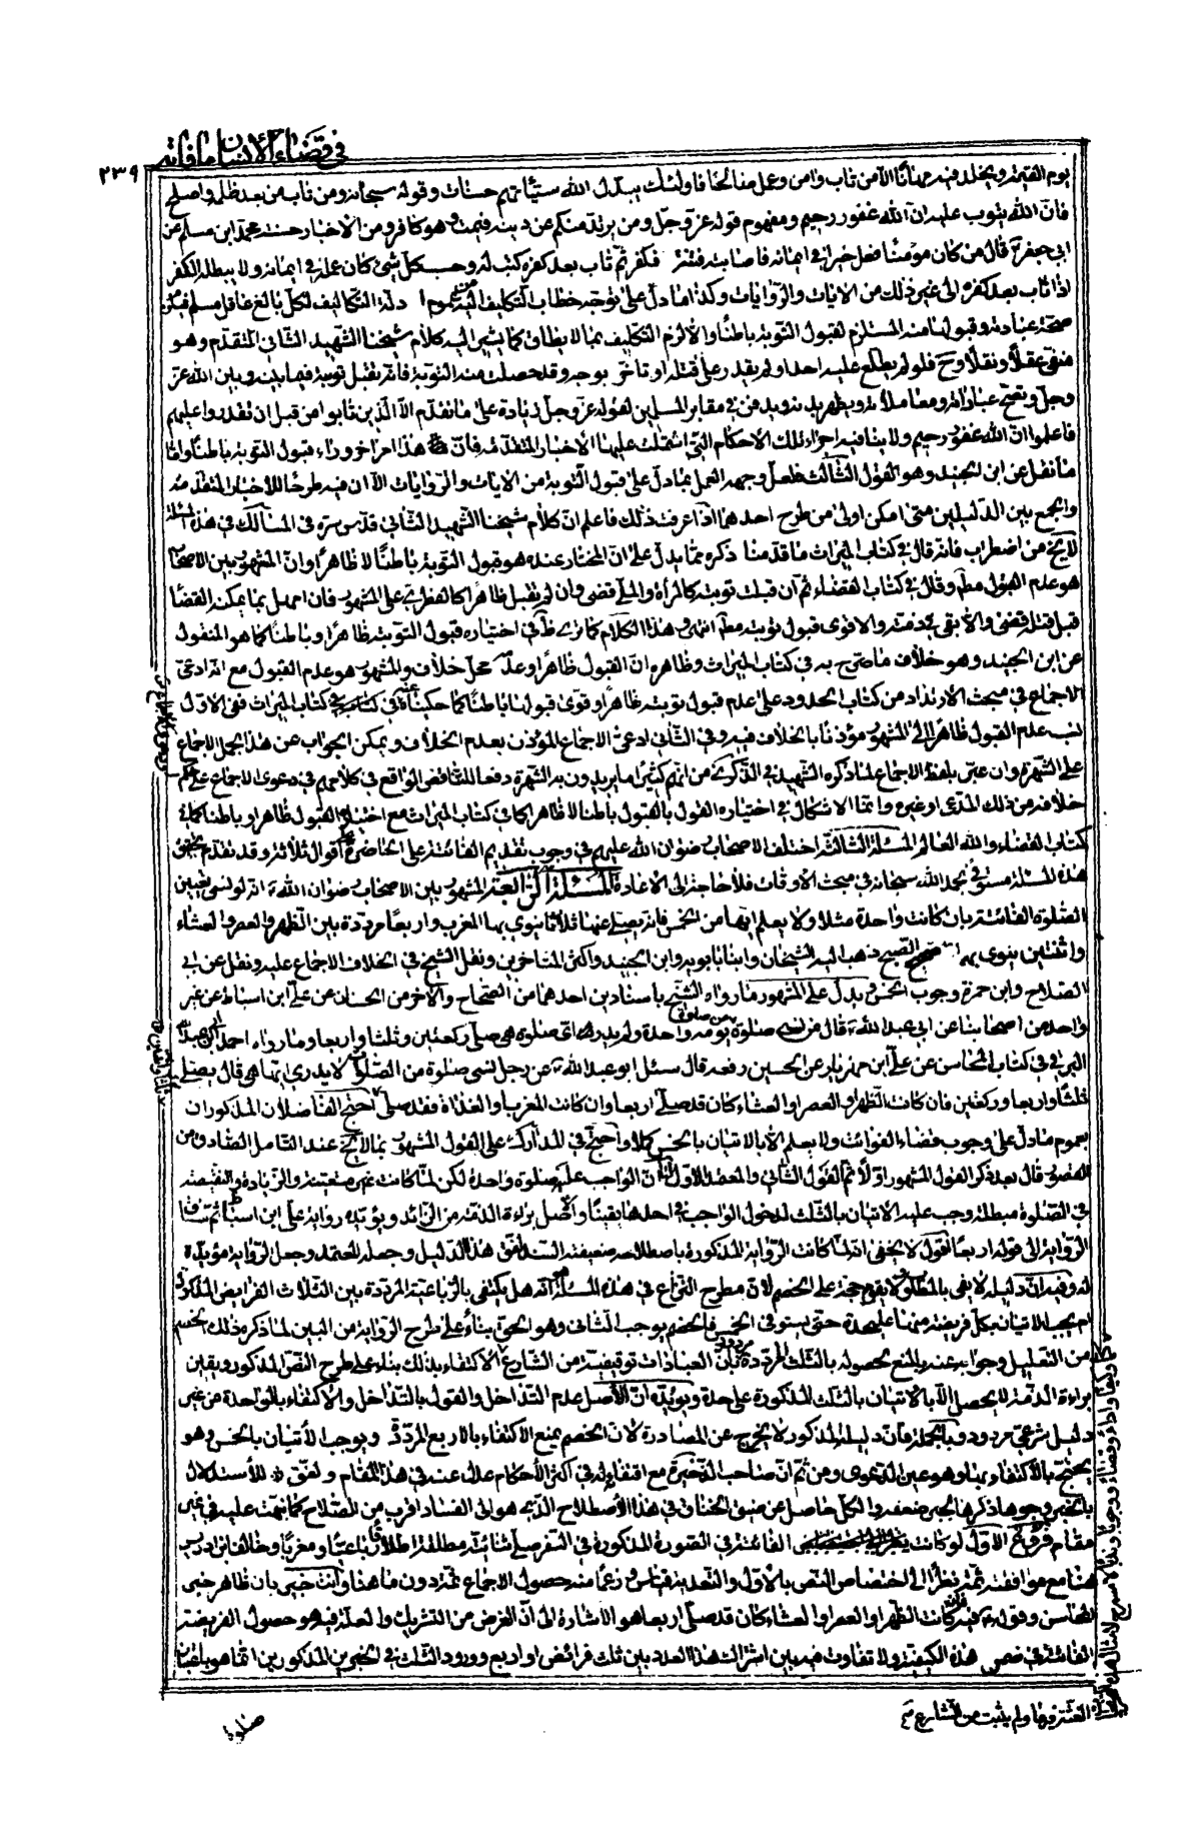 في قضاء الانسان ما فاته
٢٣٩
يوم القيمة ويخلد فيه مهانا الا من تاب وامن وعمل صالحا فاولئك يبدل الله سيئاتهم حسنات وقوله سبحانه ومن تاب من بعد ظلمه واصلح
فان الله يتوب عليه ان الله غفور رحيم ومفهوم قوله عز وجل ومن يرتدد منكم عن دينه فيمت وهو كافر ومن الاخبار حسنة محمد ابن مسلم عن
ابي جعفر قال من كان مؤمنا فعمل خيرا في ايمانه فاصابته فتنة فكفر ثم تاب بعد كفره كتب له وحسب كل شئ كان عمله في ايمانه ولا يبطله الكفر
اذا تاب بعد كفره الى غير ذلك من الايات والروايات وكذا ما دل على توجه خطاب التكليف اليه من عموم ادلة التكاليف لكل بالغ عاقل مسلم
صحة عباداته وقبولها منه المستلزم لقبول التوبة باطنا والا لزم التكليف بما لا يطاق كما يشير اليه كلام شيخنا الشهيد الثاني المتقدم وهو
منفي عقلا ونقلا وح فلو لم يطلع عليه احد او لم يقدر على قتله او تاخر بوجه وقد حصلت منه التوبة فانه تقبل توبته فيما بينه وبين الله عز
وجل وتصح عباداته ومعاملاته ويطهر بدنه ويدفن في مقابر المسلمين لقوله عز وجل زيادة على ما تقدم الا الذين تابوا من قبل ان تقدروا عليهم
فاعلموا ان الله غفور رحيم ولا ينافيه اجراء تلك الاحكام التي اشتملت عليها الاخبار المتقدمة فان هذا امر اخر وراء قبول التوبة باطنا واما
ما نقل عن ابن الجنيد وهو القول الثالث فلعل وجهه العمل بما دل على قبول التوبة من الايات والروايات الا ان فيه طرحا للاخبار المتقدمة
والجمع بين الدليلين متى امكن اولى من طرح احدهما اذا عرفت ذلك فاعلم ان كلام شيخنا الشهيد الثاني قدس سره في المسالك في هذه المسئلة
لا يخ من اضطراب فانه قال في كتاب الميراث ما قدمنا ذكره مما يدل على ان المختار عنده هو قبول التوبة باطنا لا ظاهرا وان المشهور بين الاصحاب
هو عدم القبول مطلقا وقال في كتاب القضاء ثم ان قبلت توبته كالمرأة والملي قضى وان لم تقبل ظاهرا كالفطري على المشهور فان امهل بما يمكنه القضاء
قبل قتله قضى والا بقي في ذمته والاقوى قبول توبته مطلقا انتهى وهذا الكلام كما ترى ظ في اختياره قبول التوبة ظاهرا وباطنا كما هو المنقول
عن ابن الجنيد وهو خلاف ما صرح به في كتاب الميراث وظاهره ان القبول ظاهرا وعدمه محل خلاف والمشهور هو عدم القبول مع انه ادعى
الاجماع في مبحث الارتداد من كتاب الحدود على عدم قبول توبته ظاهرا وقوى قبولها باطنا كما حكيناه في كتاب الميراث ففي الاول
نسب عدم القبول ظاهرا الى المشهور مؤذنا بالخلاف فيه وفي الثاني ادعى الاجماع المؤذن بعدم الخلاف ويمكن الجواب عن هذا بحمل الاجماع
على الشهرة وان عبر بلفظ الاجماع لما ذكره الشهيد في الذكرى من انهم كثيرا ما يريدون به الشهرة دفعا للتناقض الواقع في كلامهم في دعوى الاجماع على حكم
خلافه من ذلك المدعي او غيره وانما الاشكال في اختياره القول بالقبول باطنا لا ظاهرا كما في كتاب الميراث مع اختياره القبول ظاهرا وباطنا كما في
كتاب القضاء والله العالم المسئلة الثالثة اختلف الاصحاب رضوان الله عليهم في وجوب تقديم الفائتة على الحاضرة على اقوال ثلاثة وقد تقدم تحقيق
هذه المسئلة مستوفى بحمد الله سبحانه في مبحث الاوقات فلا حاجة الى الاعادة المسئلة الرابعة المشهور بين الاصحاب رضوان الله عليهم انه لو نسي تعيين
الصلوة الفائتة بان كانت واحدة مثلا ولا يعلم ايها من الخمس فانه يصلي عنها ثلاثا ينوي بها المغرب واربعا مرددة بين الظهر والعصر والعشاء
واثنتين ينوي بهما الصبح ذهب اليه الشيخان وابنا بابويه وابن الجنيد واكثر المتاخرين ونقل الشيخ في الخلاف الاجماع عليه ونقل عن ابي
الصلاح وابن حمزة وجوب الخمس ويدل على المشهور ما رواه الشيخ باسنادين احدهما من الصحاح والاخر من الحسان عن علي ابن اسباط عن غير
واحد من اصحابنا عن ابي عبد الله قال من نسي من صلوة يومه واحدة ولم يدر اي صلوة هي صلى ركعتين وثلثا واربعا وما رواه احمد ابن ابي عبد الله
البرقي في كتاب المحاسن عن علي ابن مهزيار عن الحسين رفعه قال سئل ابو عبد الله عن رجل نسي صلوة من الصلوات لا يدري ايتها هي قال يصلي
ثلثا واربعا وركعتين فان كانت الظهر او العصر او العشاء كان قد صلى اربعا وان كانت المغرب او الغداة فقد صلى احتج الفاضلان المذكوران
بعموم ما دل على وجوب قضاء الفوائت ولا يعلم الا بالاتيان بالخمس كملا واحتج في المدارك على القول المشهور بما لا يخ عند التامل الصادق من
القصور قال بعد ذكر القول المشهور اولا ثم القول الثاني والمعتمد الاول لنا ان الواجب عليه صلوة واحدة لكن لما كانت غير متعينة والزيادة والنقيصة
في الصلوة مبطلة وجب عليه الاتيان بالثلث لدخول الواجب في احدها يقينا والاصل براءة الذمة من الزائد ويؤيده رواية علي ابن اسباط ثم ساق
الرواية الى قوله اربعا اقول لا يخفى انه لما كانت الرواية المذكورة باصطلاحه ضعيفة السند لفق هذا الدليل وجعله المعتمد وجعل الرواية مؤيدة
له وفيه ان دليله لا يفي بالمطلوب ولا يقوم حجة على الخصم لان مطرح النزاع في هذه المسئلة هو انه هل يكتفى بالرباعية المرددة بين الثلاث الفرائض المذكورة
ام يجب الاتيان بكل فريضة منها على حدة حتى يستوفي الخمس فالخصم يوجب الثاني وهو الحق بناء على طرح الرواية من البين لما ذكره ذلك الخصم
من التعليل وجوابه عنه بالمنع لحصوله بالثلث المرددة مردود بان العبادات توقيفية من الشارع الاكتفاء بذلك بناء على طرح النص المذكور ويقين
براءة الذمة لا يحصل الا بالاتيان بالثلث المذكورة على حدة ويؤيده ان الاصل عدم التداخل والقول بالتداخل والاكتفاء بالواحدة من غير
دليل شرعي مردود وبالجملة فان دليله المذكور لا يخرج عن المصادرة لان الخصم يمنع الاكتفاء بالاربع المرددة ويوجب الاتيان بالخمس وهو
يحتج بالاكتفاء بها وهو عين الدعوى ومن ثم ان صاحب الذخيرة مع اقتفائه له في اكثر الاحكام عدل عنه في هذا المقام ولفق للاستدلال
بالخبر وجوها ذكرها لجبر ضعفه والكل حاصل عن ضيق الخناق في هذا الاصطلاح الذي هو الى الفساد اقرب من الصلاح كما نبهت عليه في غير
مقام فروع الاول لو كانت الفائتة في الصورة المذكورة في السفر صلى ثنائية مطلقة اطلاقا رباعيا ومغربا وخالف ابن ادريس
هنا مع موافقته ثمة نظرا الى اختصاص النص بالاول والتعدية قياس وزعما منه حصول الاجماع ثمة دون ما هنا وانت خبير بان ظاهر خبر
المحاسن وقوله فيه فان كانت الظهر او العصر او العشاء كان قد صلى اربعا هو الاشارة الى ان الغرض من التشريك والعلة فيه هو حصول الفريضة
الفائتة في ضمن هذه الكيفية ولا تفاوت فيه بين اشتراك هذا العدد بين ثلث فرائض او اربع وورود الثلث في الخبرين المذكورين انما هو باعتبار
العشر فيها ولم يثبت من الشارع
صلوة